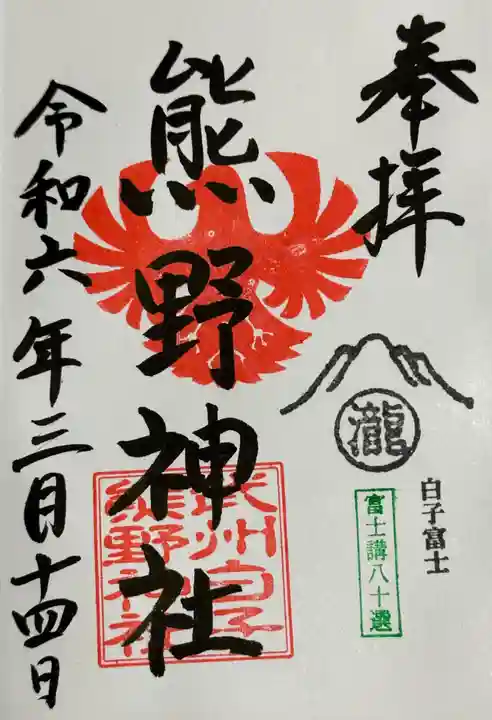 奉拝
瀧
白子富士
富士講八十選
熊野神社
武州白子
熊野神社
令和六年三月十四日